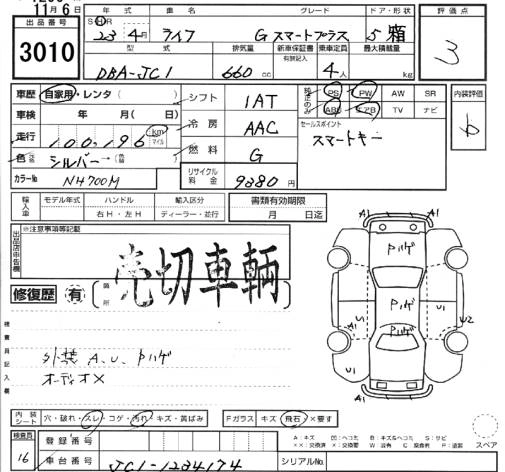 11月6日
出品番号
3010
年式 車名 グレード ドア・形状
S H R 23年4月 ライフ G スマートプラス 5 箱
型式 排気量 新車保証書 乗車定員 最大積載量
有無記入
DBA-JC1 660cc 4人 kg
評価点
3
車歴 自家用・レンタ( )
車検 年 月( 日)
走行 100,196 km マイル
色 シルバー→
カラーNo NH700M
シフト 1AT
冷房 AAC
燃料 G
リサイクル料金 9880円
純正のみ PS PW AW SR
ABS エアB TV ナビ
セールスポイント
スマートキー
内装評価
b
輸入車 モデル年式 ハンドル 輸入区分
右H・左H ディーラー・並行
書類有効期限
月 日迄
出品店申告欄 ※注意事項等記載
売切車輌
修復歴 有 箇所
検査員記入欄
外装 A、U、Pハゲ
オーディオ×
Pハゲ
Pハゲ
Pハゲ
A1 A1
A1 U1 U1 U2
U1 A1
A1
内装シート 穴・破れ・スレ・コゲ・汚れ・キズ・黄ばみ
Fガラス キズ 飛石 ×要す
検査員 16
登録番号
車台番号 JC1-1234174
シリアルNo.
A:キズ 凹:ヘコミ B:キズ&ヘコミ S:サビ
スペア